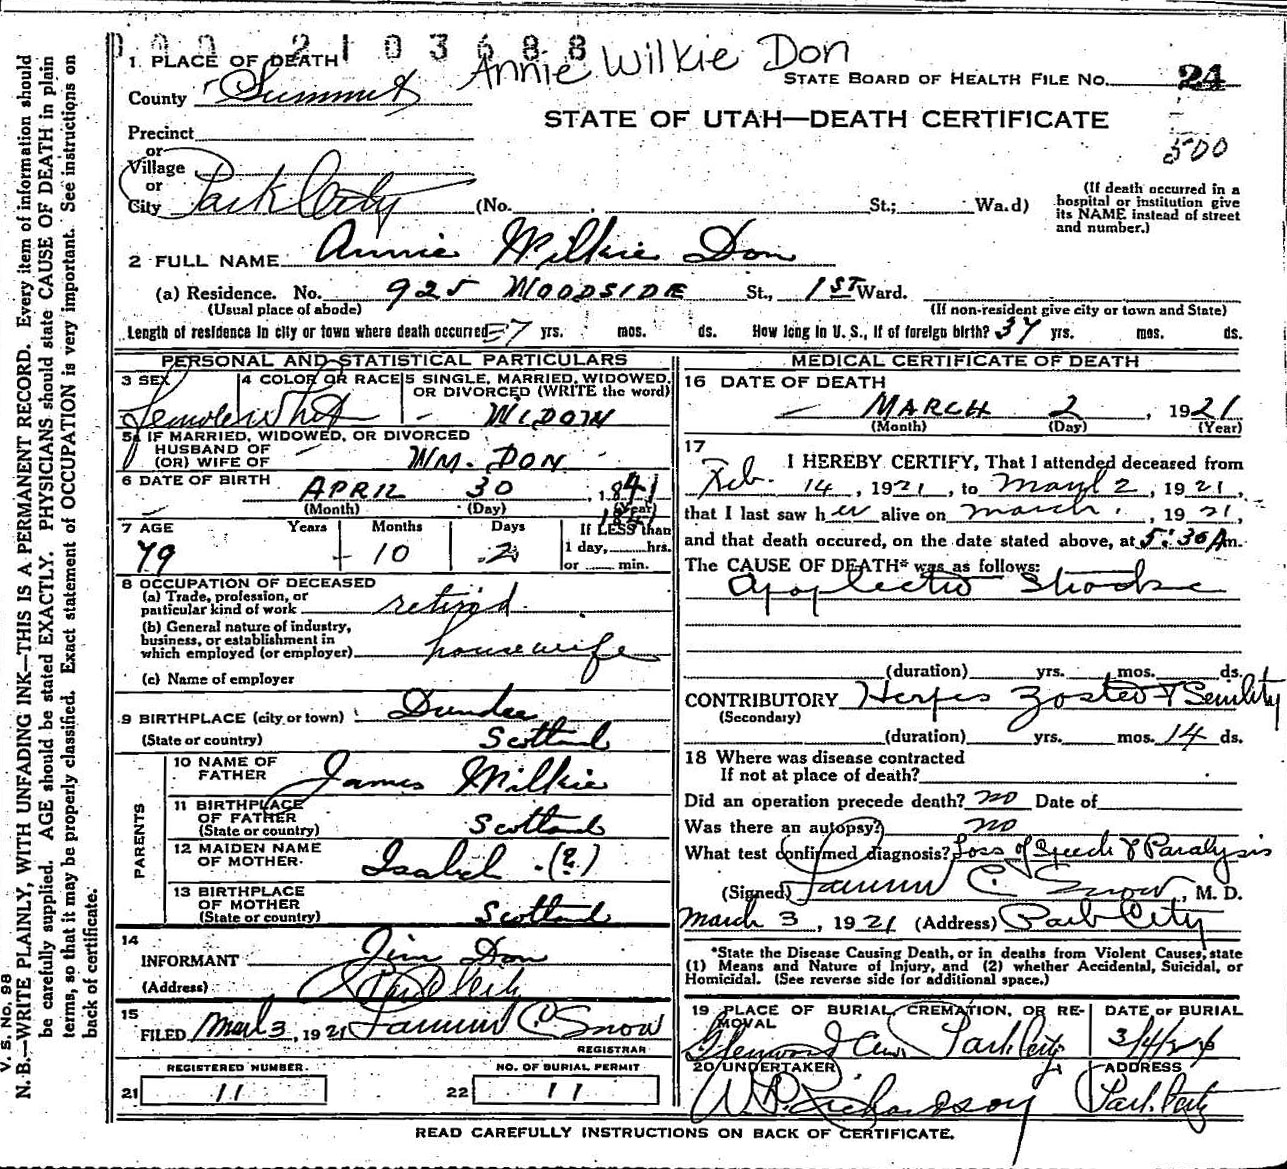 000 2103688
1 PLACE OF DEATH Annie Wilkie Don
STATE BOARD OF HEALTH FILE NO. 24
County Summit
STATE OF UTAH—DEATH CERTIFICATE
500
Precinct
or
Village
or
City Park City (No. St.; Wa.d)
(If death occurred in a hospital or institution give its NAME instead of street and number.)
2 FULL NAME Annie Wilkie Don
(a) Residence. No. 925 WOODSIDE St., 1ST Ward.
(Usual place of abode) (If non-resident give city or town and State)
Length of residence in city or town where death occurred 37 yrs. mos. ds. How long in U. S., if of foreign birth? 37 yrs. mos. ds.
PERSONAL AND STATISTICAL PARTICULARS
3 SEX 4 COLOR OR RACE 5 SINGLE, MARRIED, WIDOWED, OR DIVORCED (WRITE the word)
Female White WIDOW
5a IF MARRIED, WIDOWED, OR DIVORCED
HUSBAND OF
(OR) WIFE OF WM. DON
6 DATE OF BIRTH APRIL 30, 1841
(Month) (Day) (Year)
1841
7 AGE Years Months Days If LESS than
79 10 2 1 day, hrs.
or min.
8 OCCUPATION OF DECEASED
(a) Trade, profession, or
particular kind of work retired
(b) General nature of industry,
business, or establishment in
which employed (or employer) housewife
(c) Name of employer
9 BIRTHPLACE (city or town) Dundee
(State or country) Scotland
PARENTS
10 NAME OF
FATHER James Wilkie
11 BIRTHPLACE
OF FATHER
(State or country) Scotland
12 MAIDEN NAME
OF MOTHER Isabel (?)
13 BIRTHPLACE
OF MOTHER
(State or country) Scotland
14
INFORMANT Jim Don
(Address) Park City
15
FILED Mar 3, 1921 C. Snow
REGISTRAR
REGISTERED NUMBER. NO. OF BURIAL PERMIT
21 11 22 11
MEDICAL CERTIFICATE OF DEATH
16 DATE OF DEATH
MARCH 2, 1921
(Month) (Day) (Year)
17
I HEREBY CERTIFY, That I attended deceased from
Feb. 14, 1921, to March 2, 1921,
that I last saw her alive on March 1, 1921,
and that death occured, on the date stated above, at 5:30 A m.
The CAUSE OF DEATH* was as follows:
Apoplectic Shock
(duration) yrs. mos. ds.
CONTRIBUTORY Herpes Zoster & Senility
(Secondary)
(duration) yrs. mos. 14 ds.
18 Where was disease contracted
If not at place of death?
Did an operation precede death? no Date of
Was there an autopsy? no
What test confirmed diagnosis? Loss of Speech & Paralysis
(Signed) C. Snow, M. D.
March 3, 1921 (Address) Park City
*State the Disease Causing Death, or in deaths from Violent Causes, state
(1) Means and Nature of Injury, and (2) whether Accidental, Suicidal, or
Homicidal. (See reverse side for additional space.)
19 PLACE OF BURIAL, CREMATION, OR RE-
MOVAL DATE OF BURIAL
Glenwood Cem. Park City 3/4/21
20 UNDERTAKER ADDRESS
Richardson Park City
READ CAREFULLY INSTRUCTIONS ON BACK OF CERTIFICATE.
V. S. No. 98
N. B.—WRITE PLAINLY, WITH UNFADING INK—THIS IS A PERMANENT RECORD. Every item of information should
be carefully supplied. AGE should be stated EXACTLY. PHYSICIANS should state CAUSE OF DEATH in plain
terms, so that it may be properly classified. Exact statement of OCCUPATION is very important. See instructions on
back of certificate.